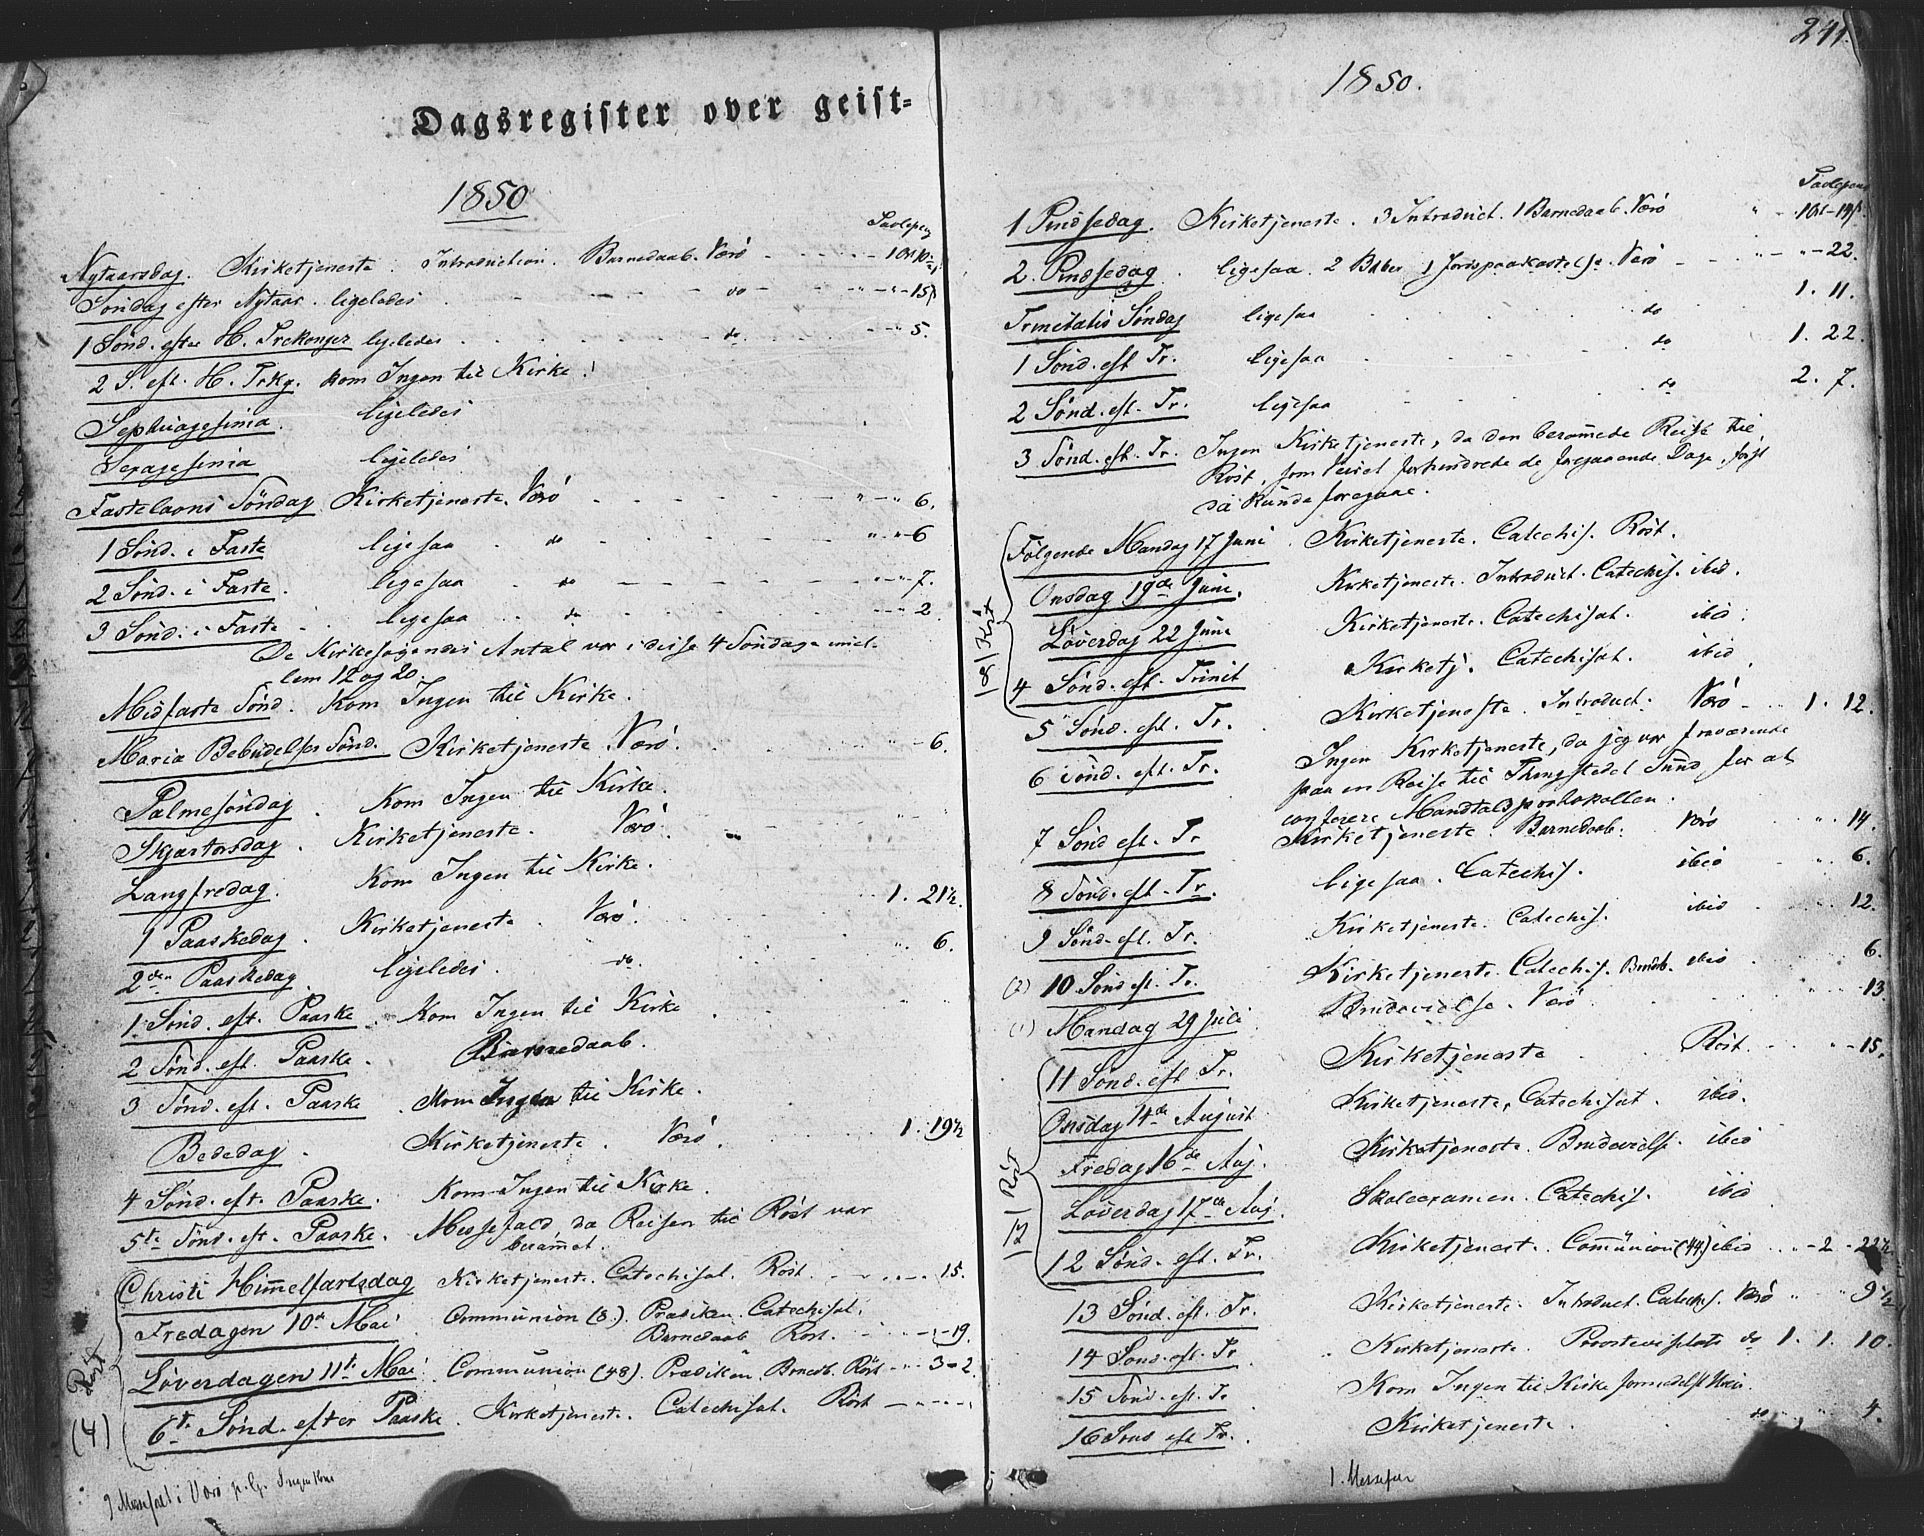 Dagsregister over geist-
1850
Tavlepeng
Nytaarsdag. Kirketjeneste. Introduction. Barnedaab. Værö
Söndag efter Nytaar. ligeledes do 15
1 Sönd. efter H. Trekonger ligeledes do 5.
2 S. eft. H. Trkg. kom Ingen til Kirke.
Septuagesima. ligeledes
Sexagesima ligeledes
Fastelavns Söndag Kirketjeneste. Værö 6.
1 Sönd. i Faste ligesaa do 6
2 Sönd. i Faste. ligesaa do 7.
3 Sönd. i Faste ligesaa do 2
De Kirkesögendes Antal var i disse 4 Söndage mel-
lem 12 og 20.
Midfaste Sönd. Kom Ingen til Kirke.
Maria Bebudelses Sönd. Kirketjeneste. Værö. 6.
Palmesöndag. Kom Ingen til Kirke.
Skjærtorsdag. Kirketjeneste. Værö.
Langfredag. Kom Ingen til Kirke.
1 Paaskedag. Kirketjeneste. Værö. 1. 21½.
2den Paaskedag ligeledes. do. 6.
1 Sönd. eft. Paaske. Kom Ingen til Kirke
2 Sönd. eft. Paaske. Barnedaab.
3 Sönd. eft. Paaske. Kom Ingen til Kirke.
Bededag. Kirketjeneste. Værö. 1. 19½
4 Sönd. eft. Paaske. Kom Ingen til Kirke.
5te Sönd. eft. Paaske. Messefald, da Reisen til Röst var
beram̄et.
Christi Him̄elfartsdag Kirketjenest. Catechisat. Röst 15.
Fredagen 10de Mai Communion (8.) Prædiken Catechisat.
Barnedaab Röst. 19.
Löverdagen 11te Mai Communion (48). Prædiken Brnedb. Röst 3-2.
6te Sönd. efter Paaske. Kirketjeneste. Catechisat. Röst
Röst
(4)
9 Messefald i Værö p. G. Ingen kom
241.
1850.
Tavlepeng
1 Pindsedag. Kirketjeneste. 3 Introduct. 1 Barnedaab. Værö
2. Pindsedag. ligesaa. 2 Daber 1 Jordspaakastelse. Værö 22.
Trinitatis Söndag ligesaa do 1. 11.
1 Sönd. eft Tr. ligesaa do 1. 22.
2 Sönd. eft. Tr. ligesaa do 2. 7.
3 Sönd. eft. Tr. Ingen Kirketjeneste, da den beram̄ede Reise til
Röst, som Veiret forhindrede de foregaaende Dage, först
da kunde foregaae.
Fölgende Mandag 17 Juni Kirketjeneste. Catechis. Röst.
Onsdag 19de Juni. Kirketjeneste. Introduct. Catechis. ibid.
Löverdag 22 Juni Kirketjeneste. Catechisat. ibid.
4 Sönd. eft. Trinit Kirketj. Catechisat. ibid
18 | Röst
5 Sönd. eft. Tr. Kirketjeneste. Introduct. Værö 1. 12.
6 Sönd. eft. Tr. Ingen Kirketjeneste, da jeg var fraværende
paa en Reise til Thingstedet Sund for at
conferere Mandtalsprotokollen.
7 Sönd eft. Tr Kirketjeneste. Barnedaab. Værö 14.
8 Sönd. eft. Tr. ligesaa. Catechis. ibid 6.
9 Sönd. eft. Tr. Kirketjeneste. Catechis. ibid 12.
(2) 10 Sönd eft. Tr. Kirketjeneste. Catechis. Brnedb. ibid 6.
(1) Mandag 29 Juli Brudevielse. Værö 13.
11 Sönd. eft Tr. Kirketjeneste Röst. 15.
Onsdag 14de August Kirketjeneste, Catechisat. ibid.
Fredag 16de Aug. Kirketjeneste. Brudevielse. ibid
Löverdag 17de Aug. Skoleexamen. Catechis. ibid
12 Sönd. eft. Tr. Kirketjenest. Com̄union (44.) ibid 2 - 22½
12 | Röst
13 Sönd. eft. Tr. Kirketjeneste. Introduct. Catechis. Værö 9½
14 Sönd. eft. Tr Kirketjeneste. Provstevisitats do 1. 1. 10.
15 Sönd. eft. Tr Kom Ingen til Kirke formedelst Uveir.
16 Sönd eft Tr. Kirketjeneste do 4.
1. Messefald